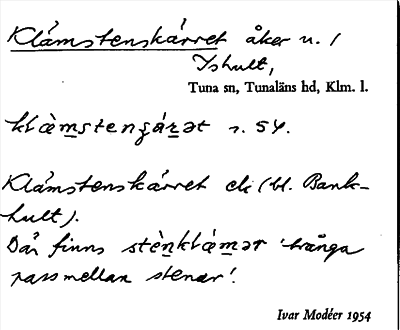 Klämstenskärret åker n. /
Ishult,
Tuna sn, Tunaläns hd, Klm. l.
klæ̀m̱stenʂáṟət s. 54.
Klämstenskärret ck (bl. Bank-
hult).
Där finns stènḵlæ̀m̱ər 'trånga
pass mellan stenar'.
Ivar Modéer 1954